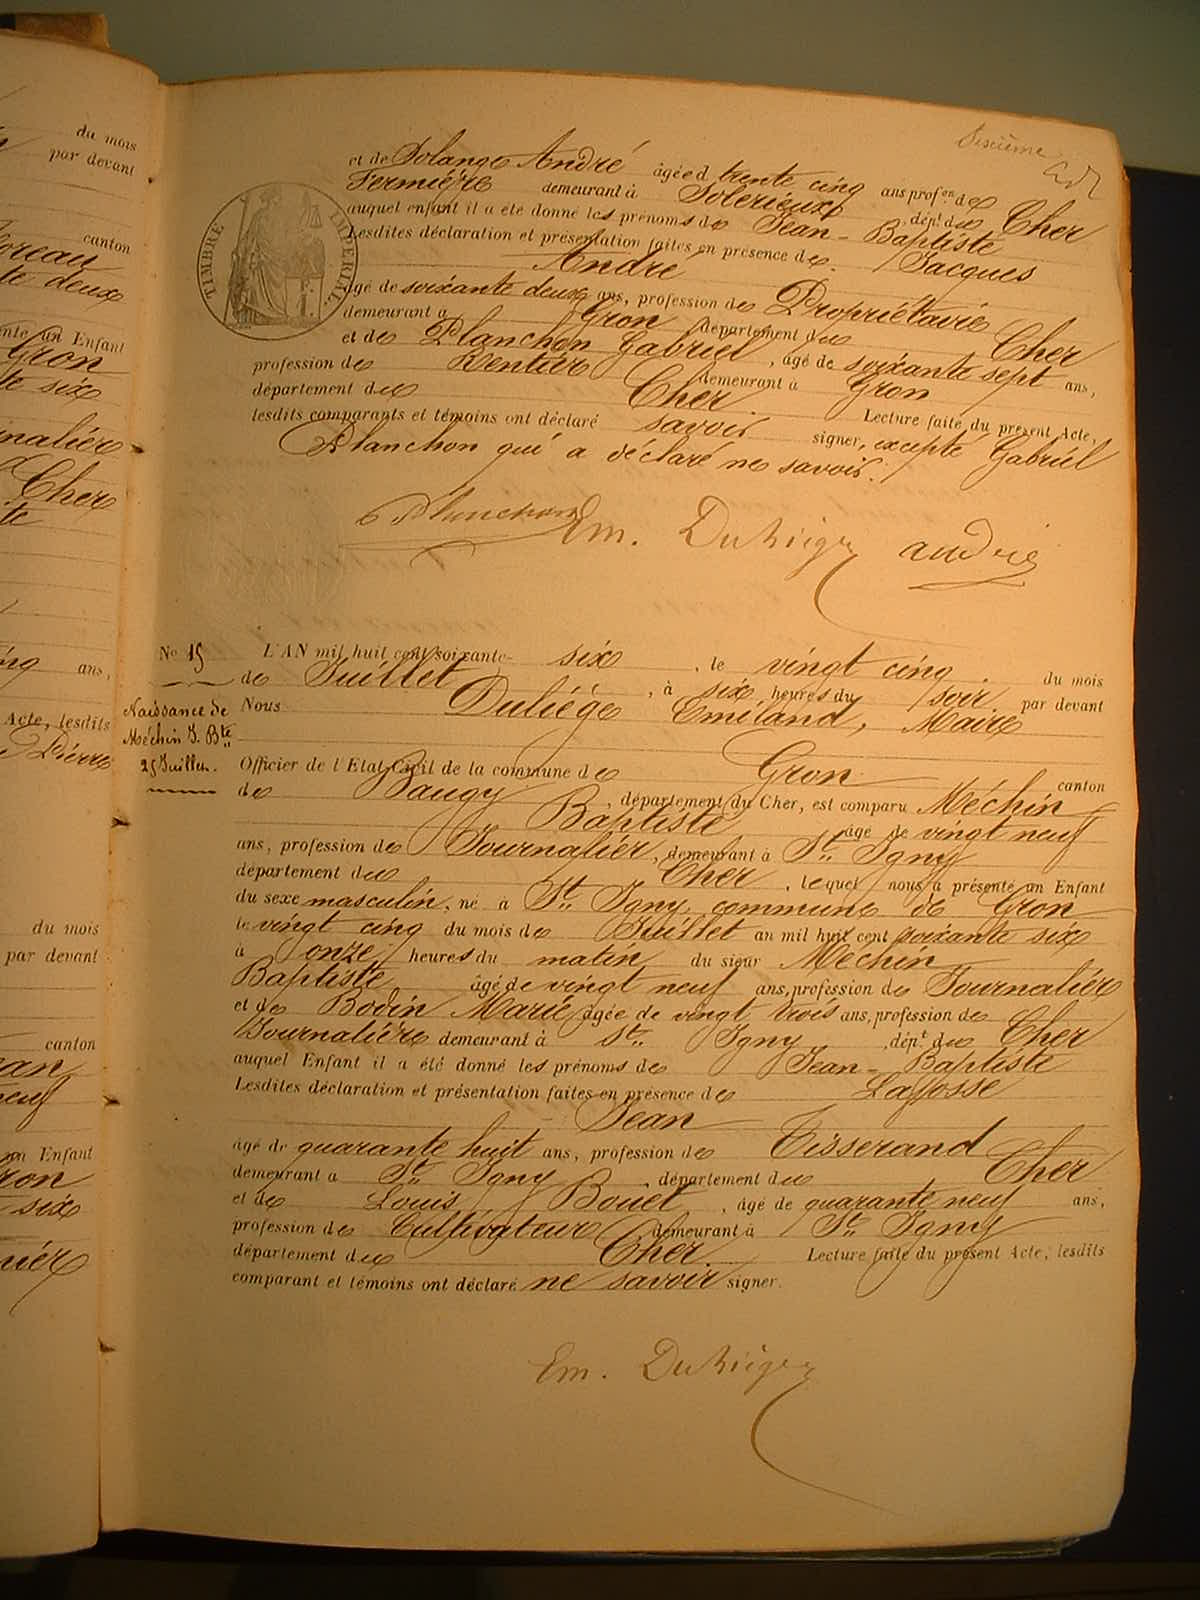 du mois
par devant
canton
te deux
un Enfant
Gron
te six
Cher
te
ans,
Acte, lesdits
Pierre
du mois
par devant
canton
Enfant
six
Sixième
TIMBRE IMPERIAL
et de Solange André âgée d trente cinq ans prof.on de
Fermière demeurant à Solerieux dép.t du Cher
auquel enfant il a été donné les prénoms de Jean-Baptiste
Lesdites déclaration et présentation faites en présence de Jacques
André
âgé de soixante deux ans, profession de Propriétaire
demeurant à Gron département du Cher
et de Planchon Gabriel, âgé de soixante sept ans,
profession de Rentier demeurant à Gron
département du Cher. Lecture faite du présent Acte,
lesdits comparants et témoins ont déclaré savoir signer, excepté Gabriel
Planchon qui a déclaré ne savoir.
Planchon Em. Duliège andré
No 15 L'AN mil huit cent soixante- six, le vingt cinq du mois
de Juillet, à six heures du soir par devant
Naissance de
Méchin J. Bte
25 Juillet.
Nous Duliége Emiland, Maire
Officier de l'Etat-Civil de la commune de Gron canton
de Baugy, département du Cher, est comparu Méchin
Baptiste âgé de vingt neuf
ans, profession de Journalier, demeurant à St. Igny
département du Cher, lequel nous a présenté un Enfant
du sexe masculin, né à St. Igny, commune de Gron
le vingt cinq du mois de Juillet an mil huit cent soixante six
à onze heures du matin du sieur Méchin
Baptiste âgé de vingt neuf ans, profession de Journalier
et de Bodin Marie âgée de vingt trois ans, profession de
Journalière demeurant à St. Igny dép.t du Cher
auquel Enfant il a été donné les prénoms de Jean-Baptiste
Lesdites déclaration et présentation faites en présence de Lafosse
Jean
âgé de quarante huit ans, profession de Tisserand
demeurant à St. Igny, département du Cher
et de Louis Bouet, âgé de quarante neuf ans,
profession de Cultivateur demeurant à St. Igny
département du Cher. Lecture faite du présent Acte, lesdits
comparant et témoins ont déclaré ne savoir signer.
Em. Duliège